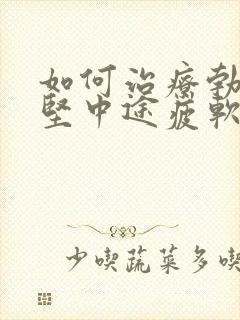 如何治療勃
堅中途疲軟
少喫蔬菜多喫